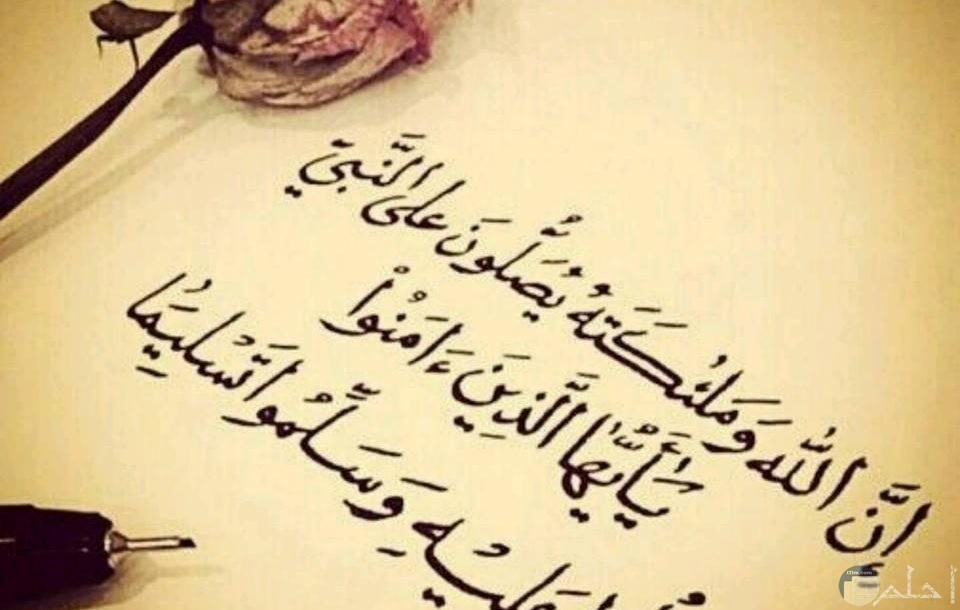 إِنَّ اللَّهَ وَمَلَٰئِكَتَهُ يُصَلُّونَ عَلَى النَّبِيِّ
يَٰأَيُّهَا الَّذِينَ ءَامَنُوا
عَلَيْهِ وَسَلِّمُوا تَسْلِيمًا
احلم